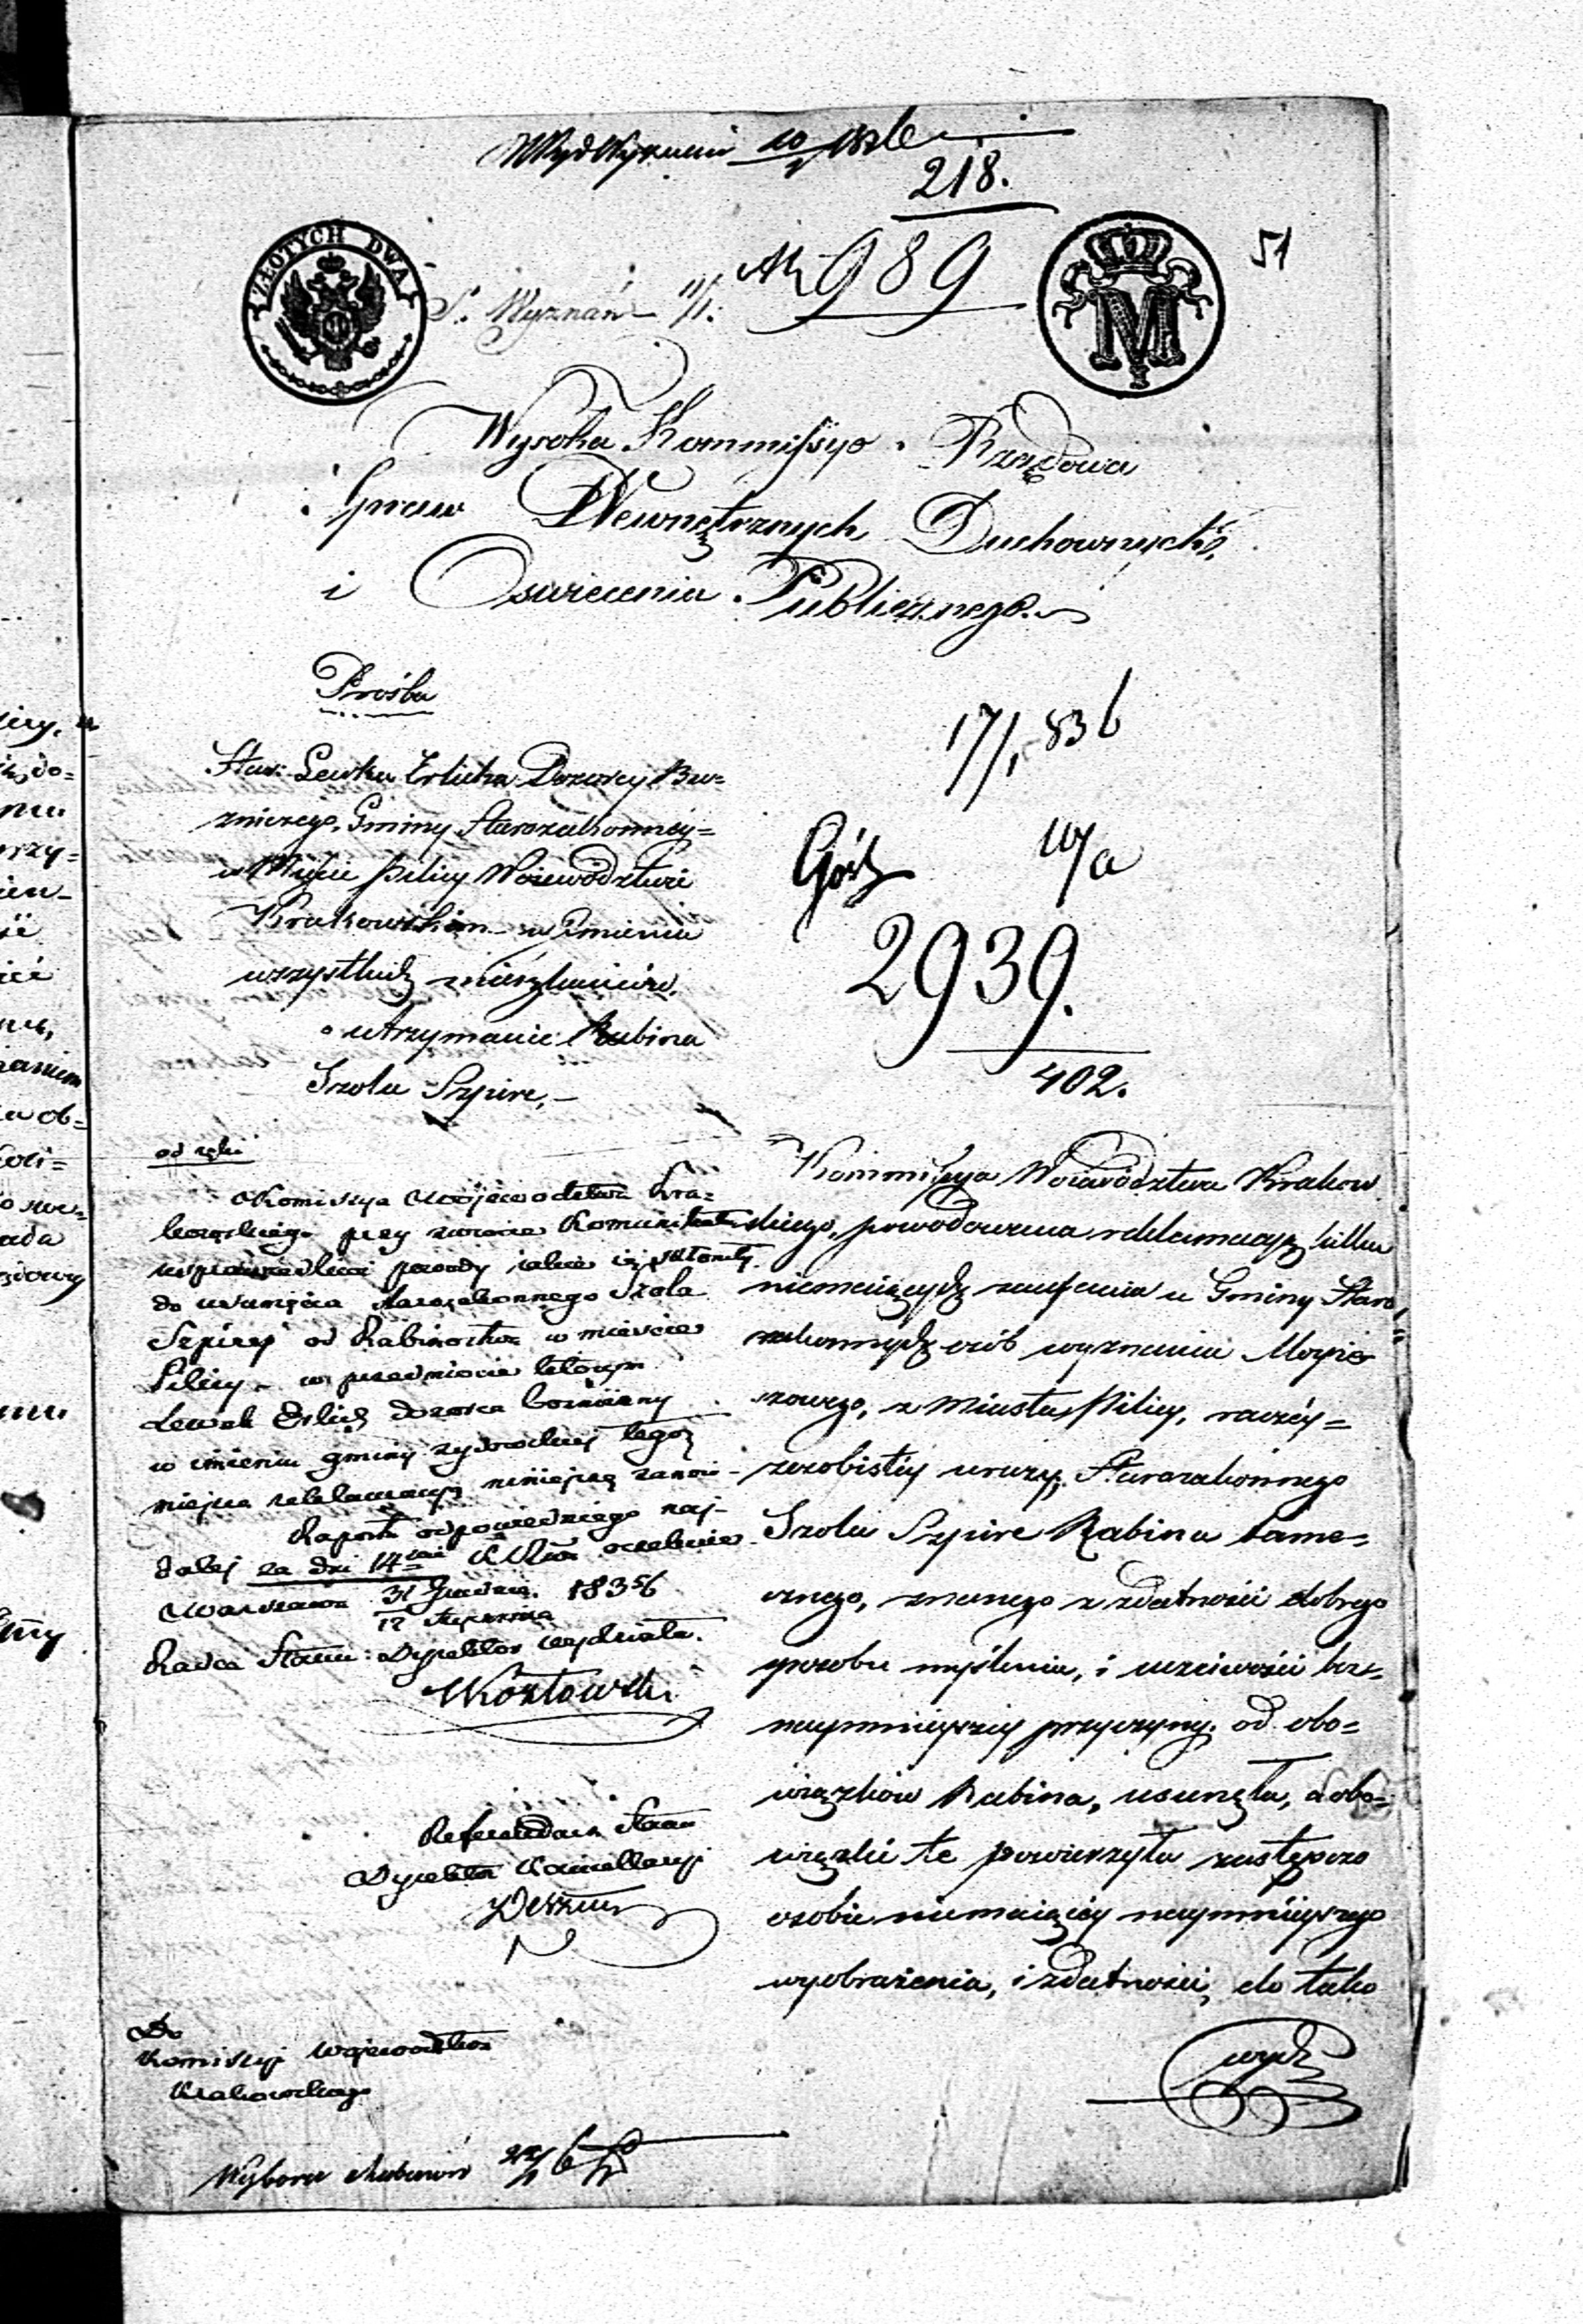 218.
ZŁOTYCH DWA
S. Wyznań 11/1. Nr 989
M
51
Wysoka Kommissyo Rządowa
Spraw Wewnętrznych Duchownych
i Oswiecenia Publicznego.
Prośba
Star: Lewka Erlicha Dozorcy Bu=
zniczego, Gminy Starozakonney=
w Mieście Pilicy Woiewództwie
Krakowskim w Imieniu
wszystkich mieszkańców,
o utrzymanie Rabina
Szola Szpire,–
17/1 836
10/a
2939.
402.
od ręki
Komissya Województwa Kra=
kowskiego przy zwrocie
usprawiedliwi powody jakie ją skłoniły
do usunięcia starozakonnego Szola
Szpirej od Rabinostwa w mieście
Pilicy – w przedmiocie którym
Lewek Erlich dozorca bożniczny
w imieniu gminy żydowskiej tegoż
miejsca reklamacyą niniejszą zanosi –
Raportu odpowiedniego naj=
dalej za dni 14 oczekuje
Warszawa 31 Grudnia 1835/6
12 Stycznia
Radca Stanu Dyrektor Wydziału.
Kozłowski
Referendarz Stanu
Dyrektor Kancellaryi
Do
Komissyi Województwa
Krakowskiego
Wyboru Rabinów
Kommissya Woiewództwa Krakow
skiego, powodowana reklamacyą kilku
niemaiących zaufania u Gminy Staro
zakonnych osób wyznania Moyże
szowego, z Miasta Pilicy, raczéy=
zosobistéy urazy, Starozakonnego
Szola Szpire Rabina tame=
cznego, znanego z zdatności dobrego
sposobu myślenia, i uczciwości bez=
naymnieyszéy przyczyny, od obo=
wiązków Rabina, usunęła, a obo=
wiązki te powierzyła zastępczo
osobie niemaiącéy naymnieyszego
wyobrażenia, i zdatności, do tako
wych